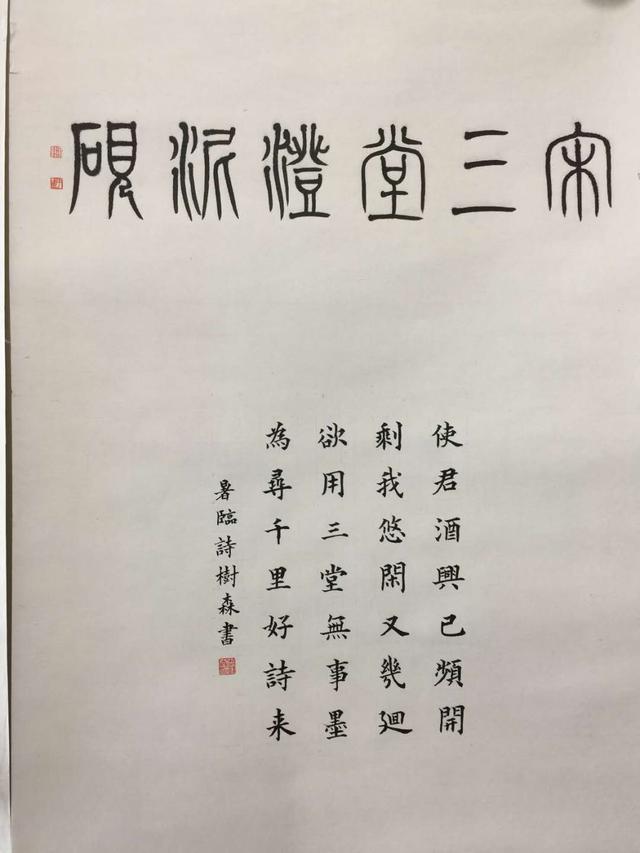 宋三堂澄泥硯
使君酒興已頻開
剩我悠閑又幾迴
欲用三堂無事墨
為尋千里好詩来
暑臨詩樹森書